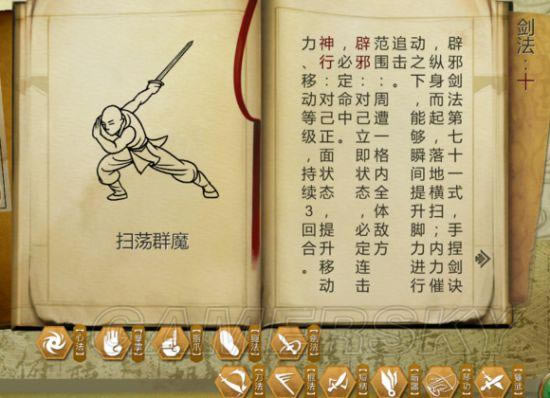 剑法：十
辟邪剑法第七十一式，手捏剑诀
，纵身而起，落地横扫；内力催
动之下，能够瞬间提升脚力进行
追击。
范围：对周遭一格内全体敌方
辟邪：对己立即状态，必定连击
，必定命中。
神行：对己正面状态，提升移动
力、移动等级，持续3回合。
扫荡群魔
GAMERSKY
【心法】
【腿法】
【剑法】
【刀法】
【棍法】
【暗器】